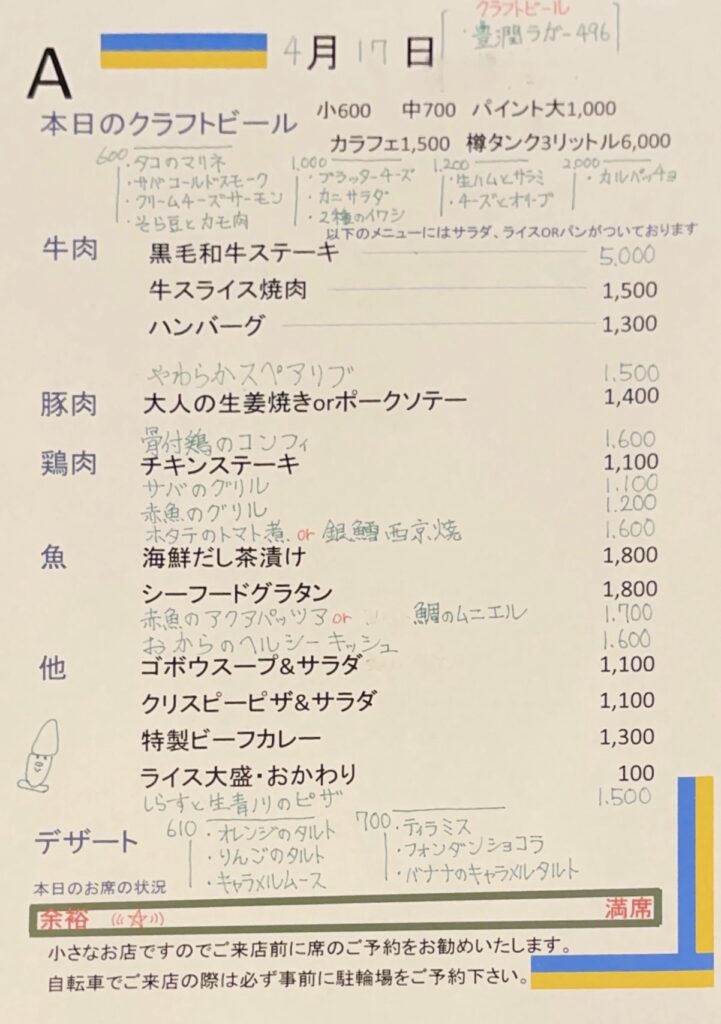 クラフトビール
・豊潤ラガー496
A 4月17日
本日のクラフトビール 小600 中700 パイント大1,000
カラフェ1,500 樽タンク3リットル6,000
600 ・タコのマリネ
・サバコールドスモーク
・クリームチーズサーモン
・そら豆とカモ肉
1,000 ・ブラッターチーズ
・カニサラダ
・2種のイワシ
1,200 ・生ハムとサラミ
・チーズとオリーブ
2,000 ・カルパッチョ
以下のメニューにはサラダ、ライスORパンがついております
牛肉 黒毛和牛ステーキ 5,000
牛スライス焼肉 1,500
ハンバーグ 1,300
やわらかスペアリブ 1.500
豚肉 大人の生姜焼きorポークソテー 1,400
骨付鶏のコンフィ 1.600
鶏肉 チキンステーキ 1,100
サバのグリル 1.100
赤魚のグリル 1.200
ホタテのトマト煮 or 銀鱈西京焼 1.600
魚 海鮮だし茶漬け 1,800
シーフードグラタン 1,800
赤魚のアクアパッツア or 鯛のムニエル 1.700
おからのヘルシーキッシュ 1.600
他 ゴボウスープ&サラダ 1,100
クリスピーピザ&サラダ 1,100
特製ビーフカレー 1,300
ライス大盛・おかわり 100
しらすと生青川のピザ 1.500
デザート 610 ・オレンジのタルト
・りんごのタルト
・キャラメルムース
700 ・ティラミス
・フォンダンショコラ
・バナナのキャラメルタルト
本日のお席の状況
余裕 ((☆)) 満席
小さなお店ですのでご来店前に席のご予約をお勧めいたします。
自転車でご来店の際は必ず事前に駐輪場をご予約下さい。